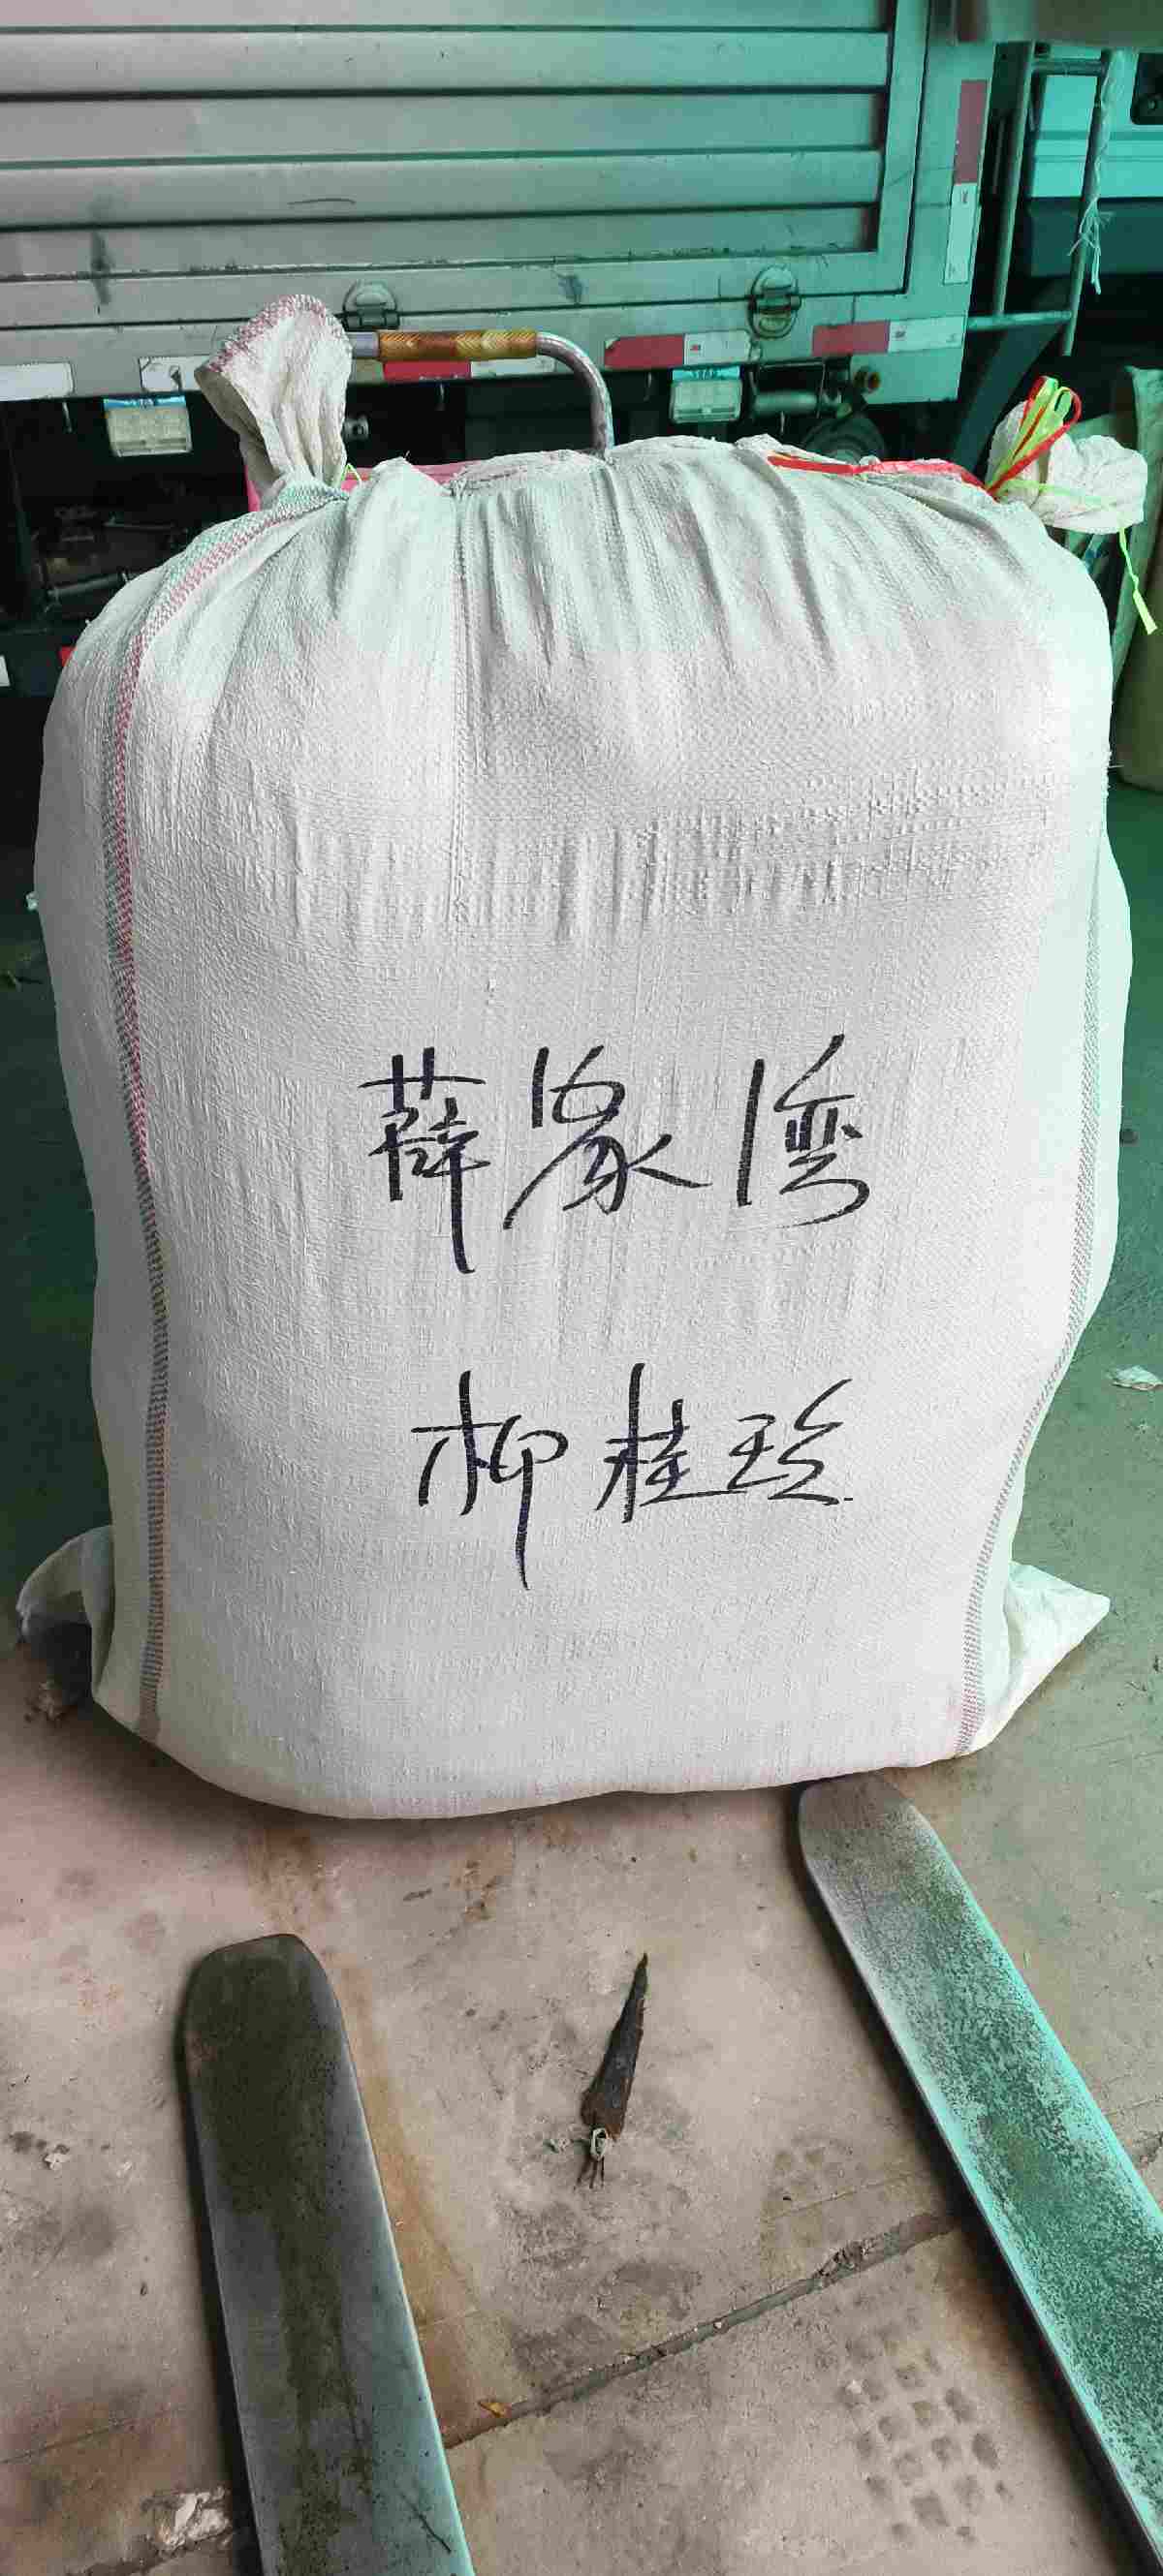 薛家湾
柳桂珍